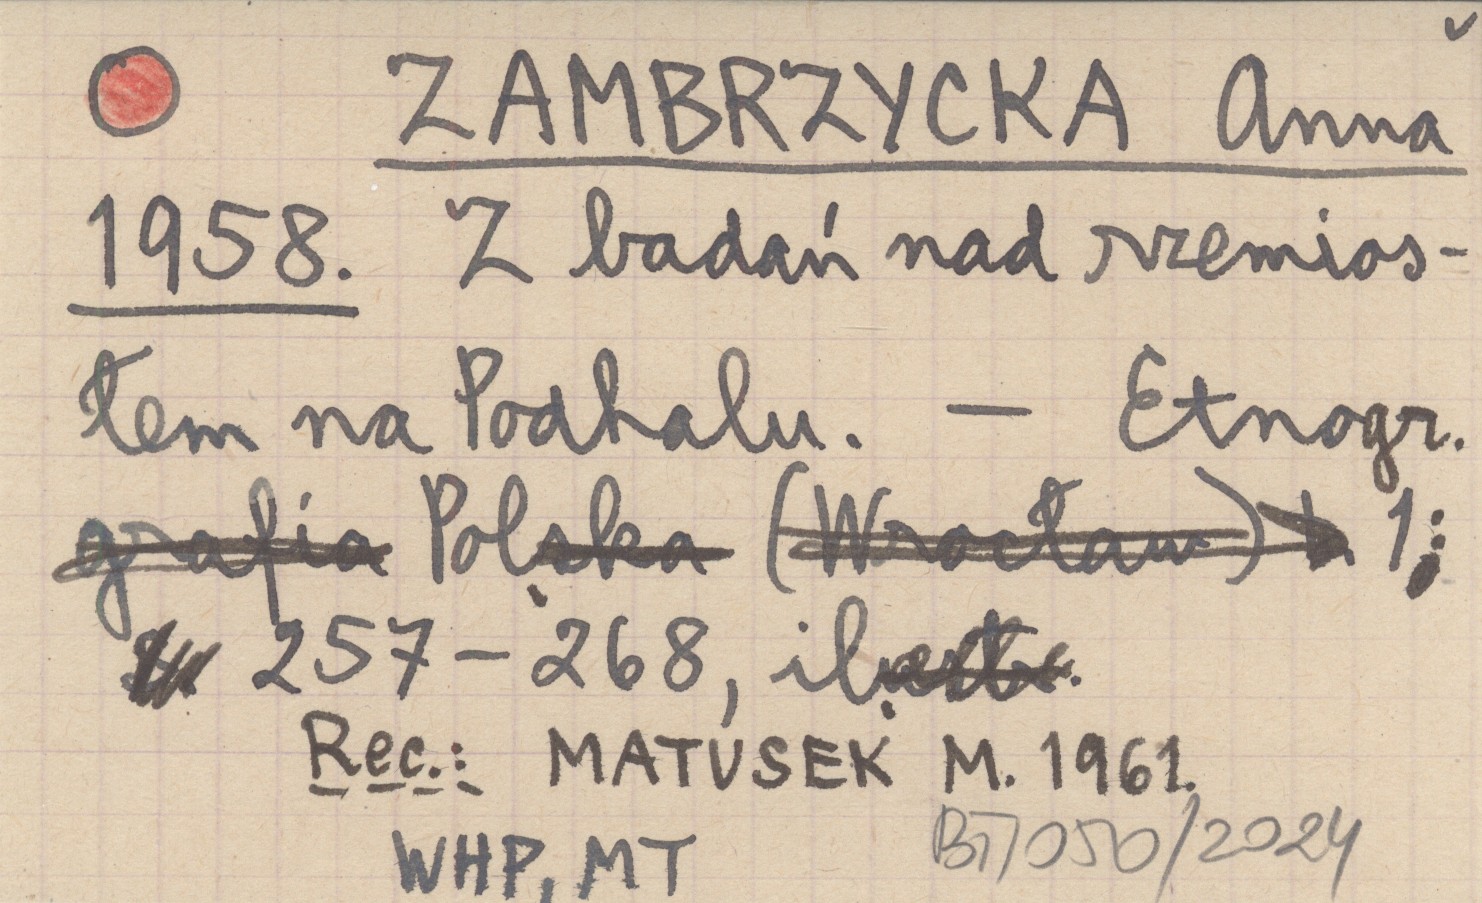 ZAMBRZYCKA Anna
1958. Z badań nad rzemios-
łem na Podhalu. — Etnogr.
grafia Polska (Wrocław) 1;
257-268, ilustr.
Rec.: MATUSEK M. 1961.
WHP, MT
BT/050/2024